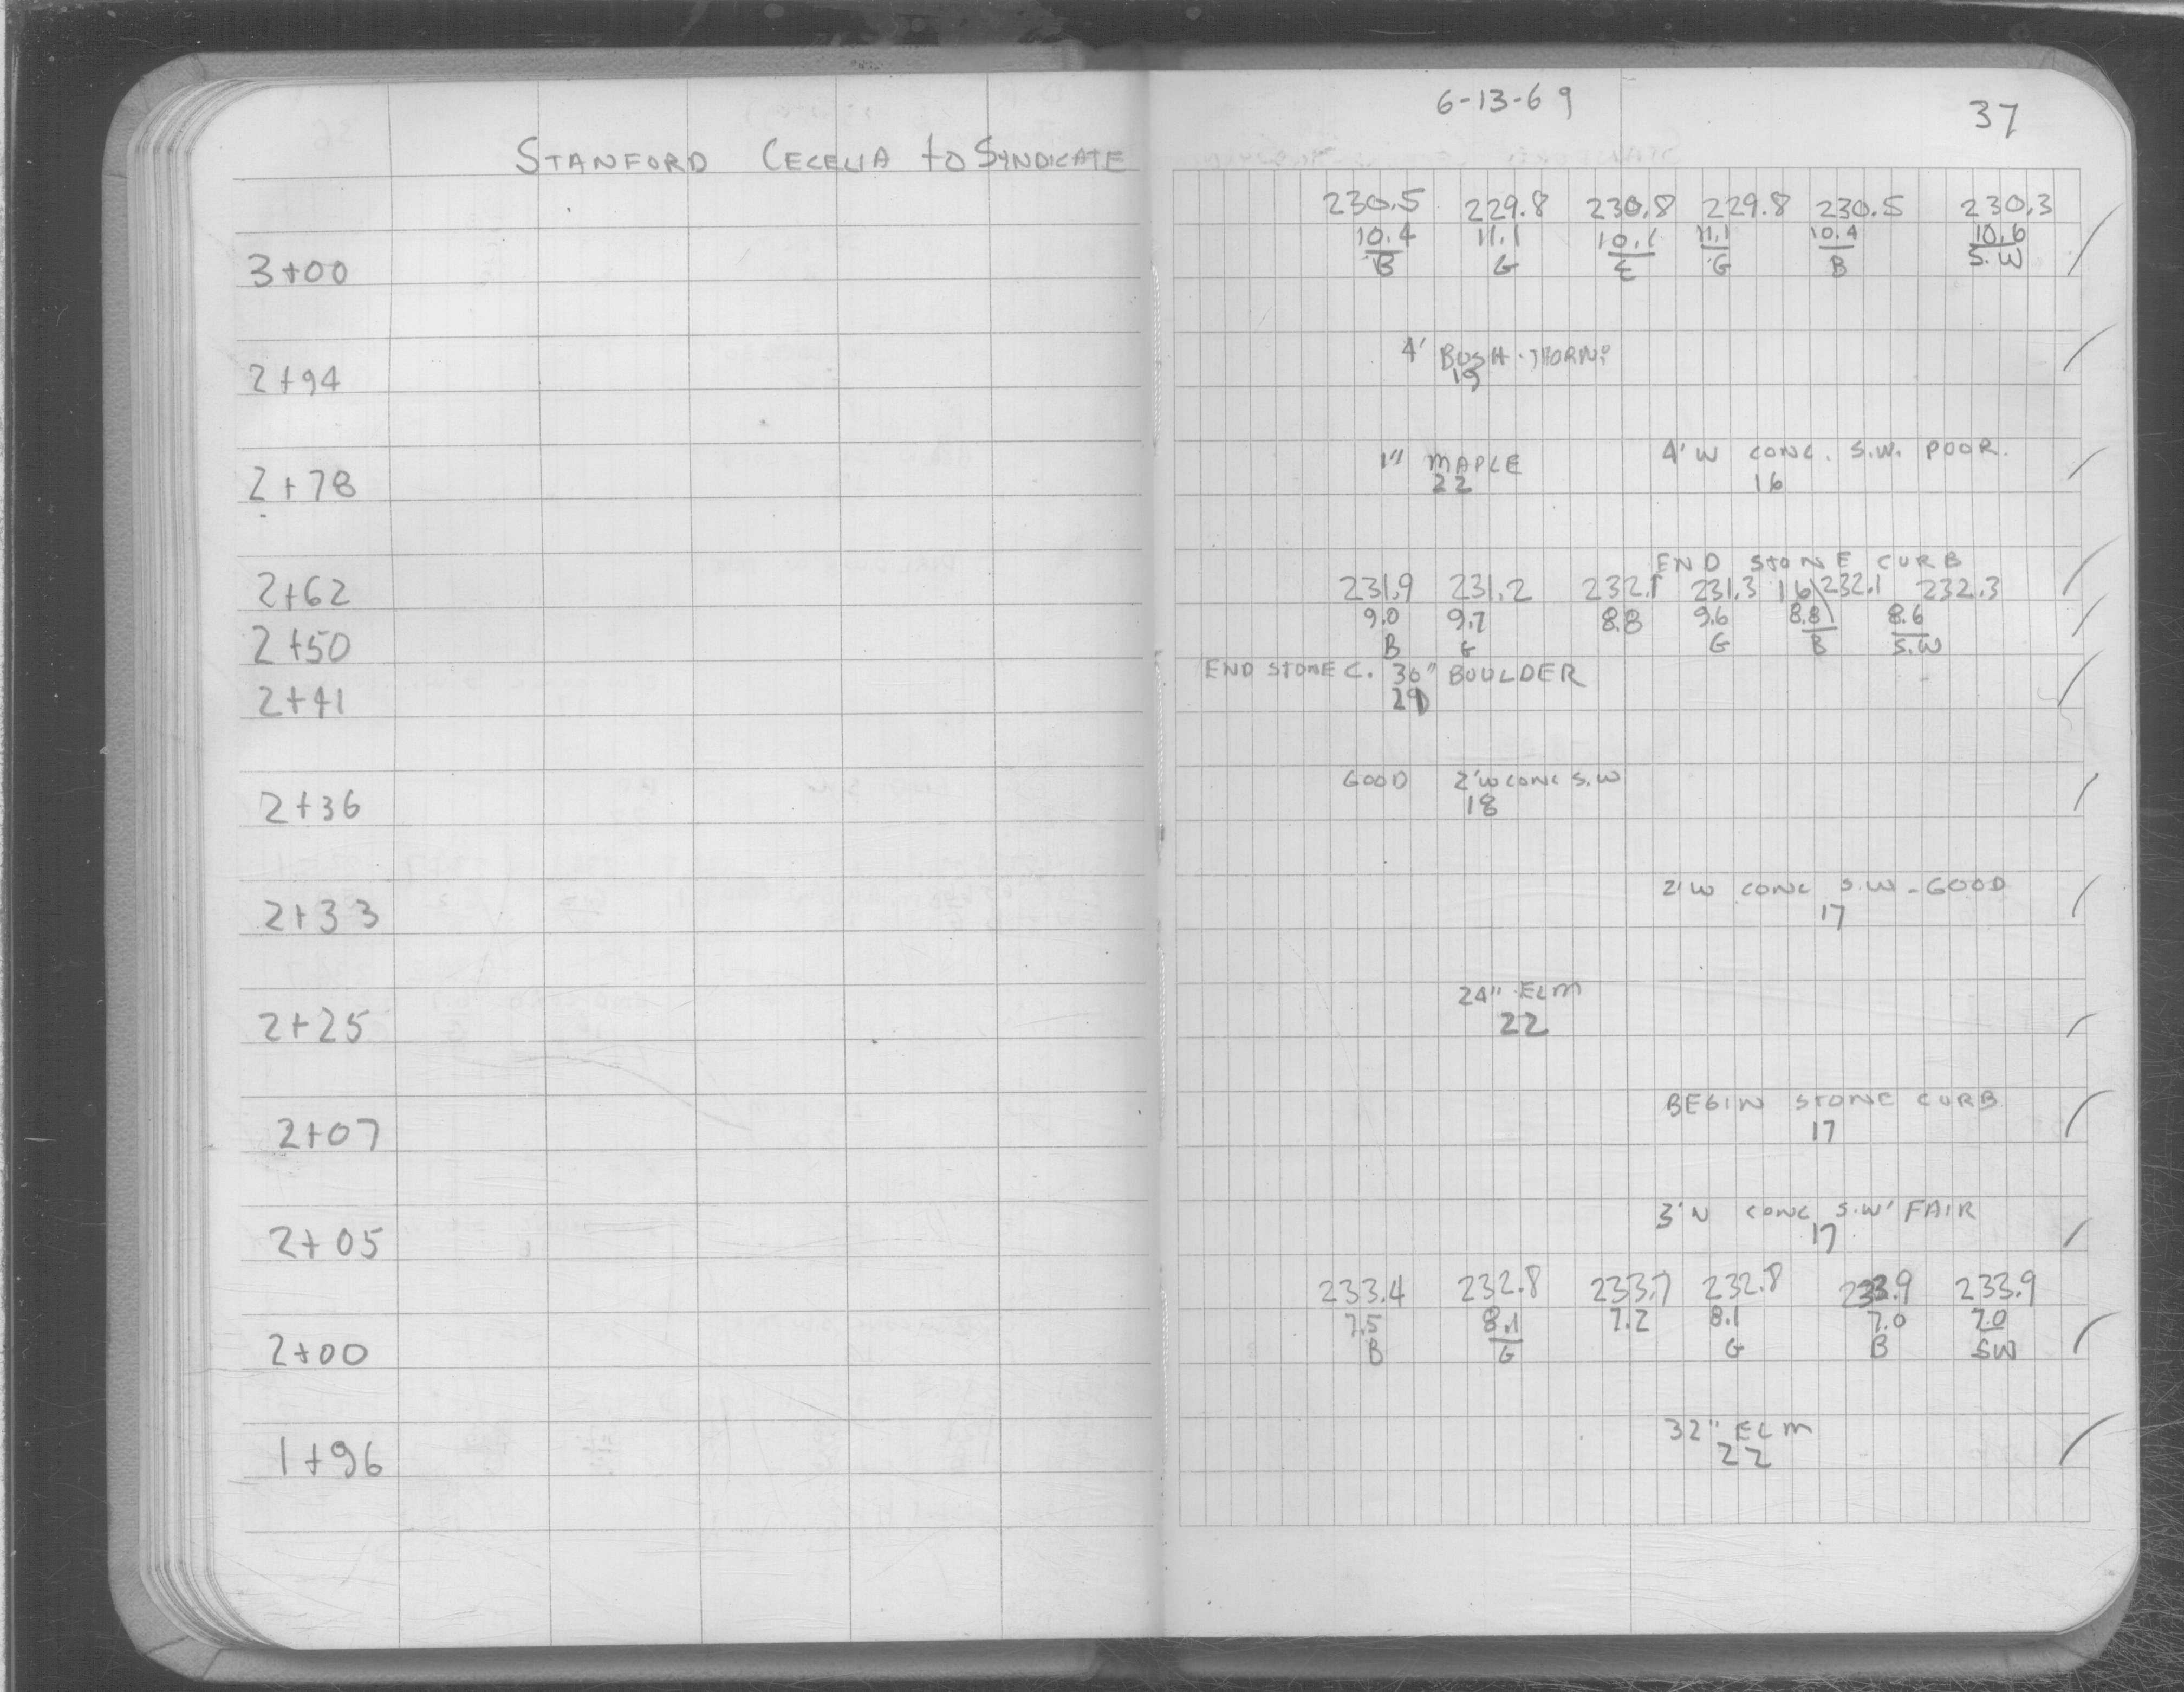 6-13-69
37
STANFORD CECELIA to SYNDICATE
230.5 229.8 230.8 229.8 230.5 230.3
10.4 11.1 10.1 11.1 10.4 10.6
3+00 B G C G B S.W
4' BUSH THORN
2+94 19
1" MAPLE 4'W CONC. S.W. POOR.
2+78 22 16
END STONE CURB
2+62 231.9 231.2 232.1 231.3 16 232.1 232.3
9.0 9.7 8.8 9.6 8.8 8.6
2+50 B G G B S.W
END STONE C. 30" BOULDER
2+41 29
GOOD 2'W CONC S.W
2+36 18
2'W CONC S.W - GOOD
2+33 17
24" ELM
2+25 22
BEGIN STONE CURB
2+07 17
3'N CONC S.W' FAIR
2+05 17
233.4 232.8 233.7 232.8 233.9 233.9
7.5 8.1 7.2 8.1 7.0 7.0
2+00 B G G B SW
32" ELM
1+96 22